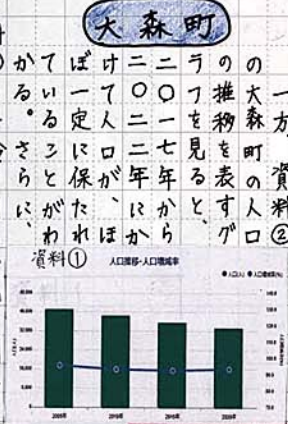 大森町
一方、資料②
の大森町の人口
の推移を表すグ
ラフを見ると、
二〇一七年から
二〇二一年にか
けて人口が、ほ
ぼ一定に保たれ
ていることがわ
かる。さらに、
資料①
人口推移・人口増減率
●人口(人) ●人口増減率(%)